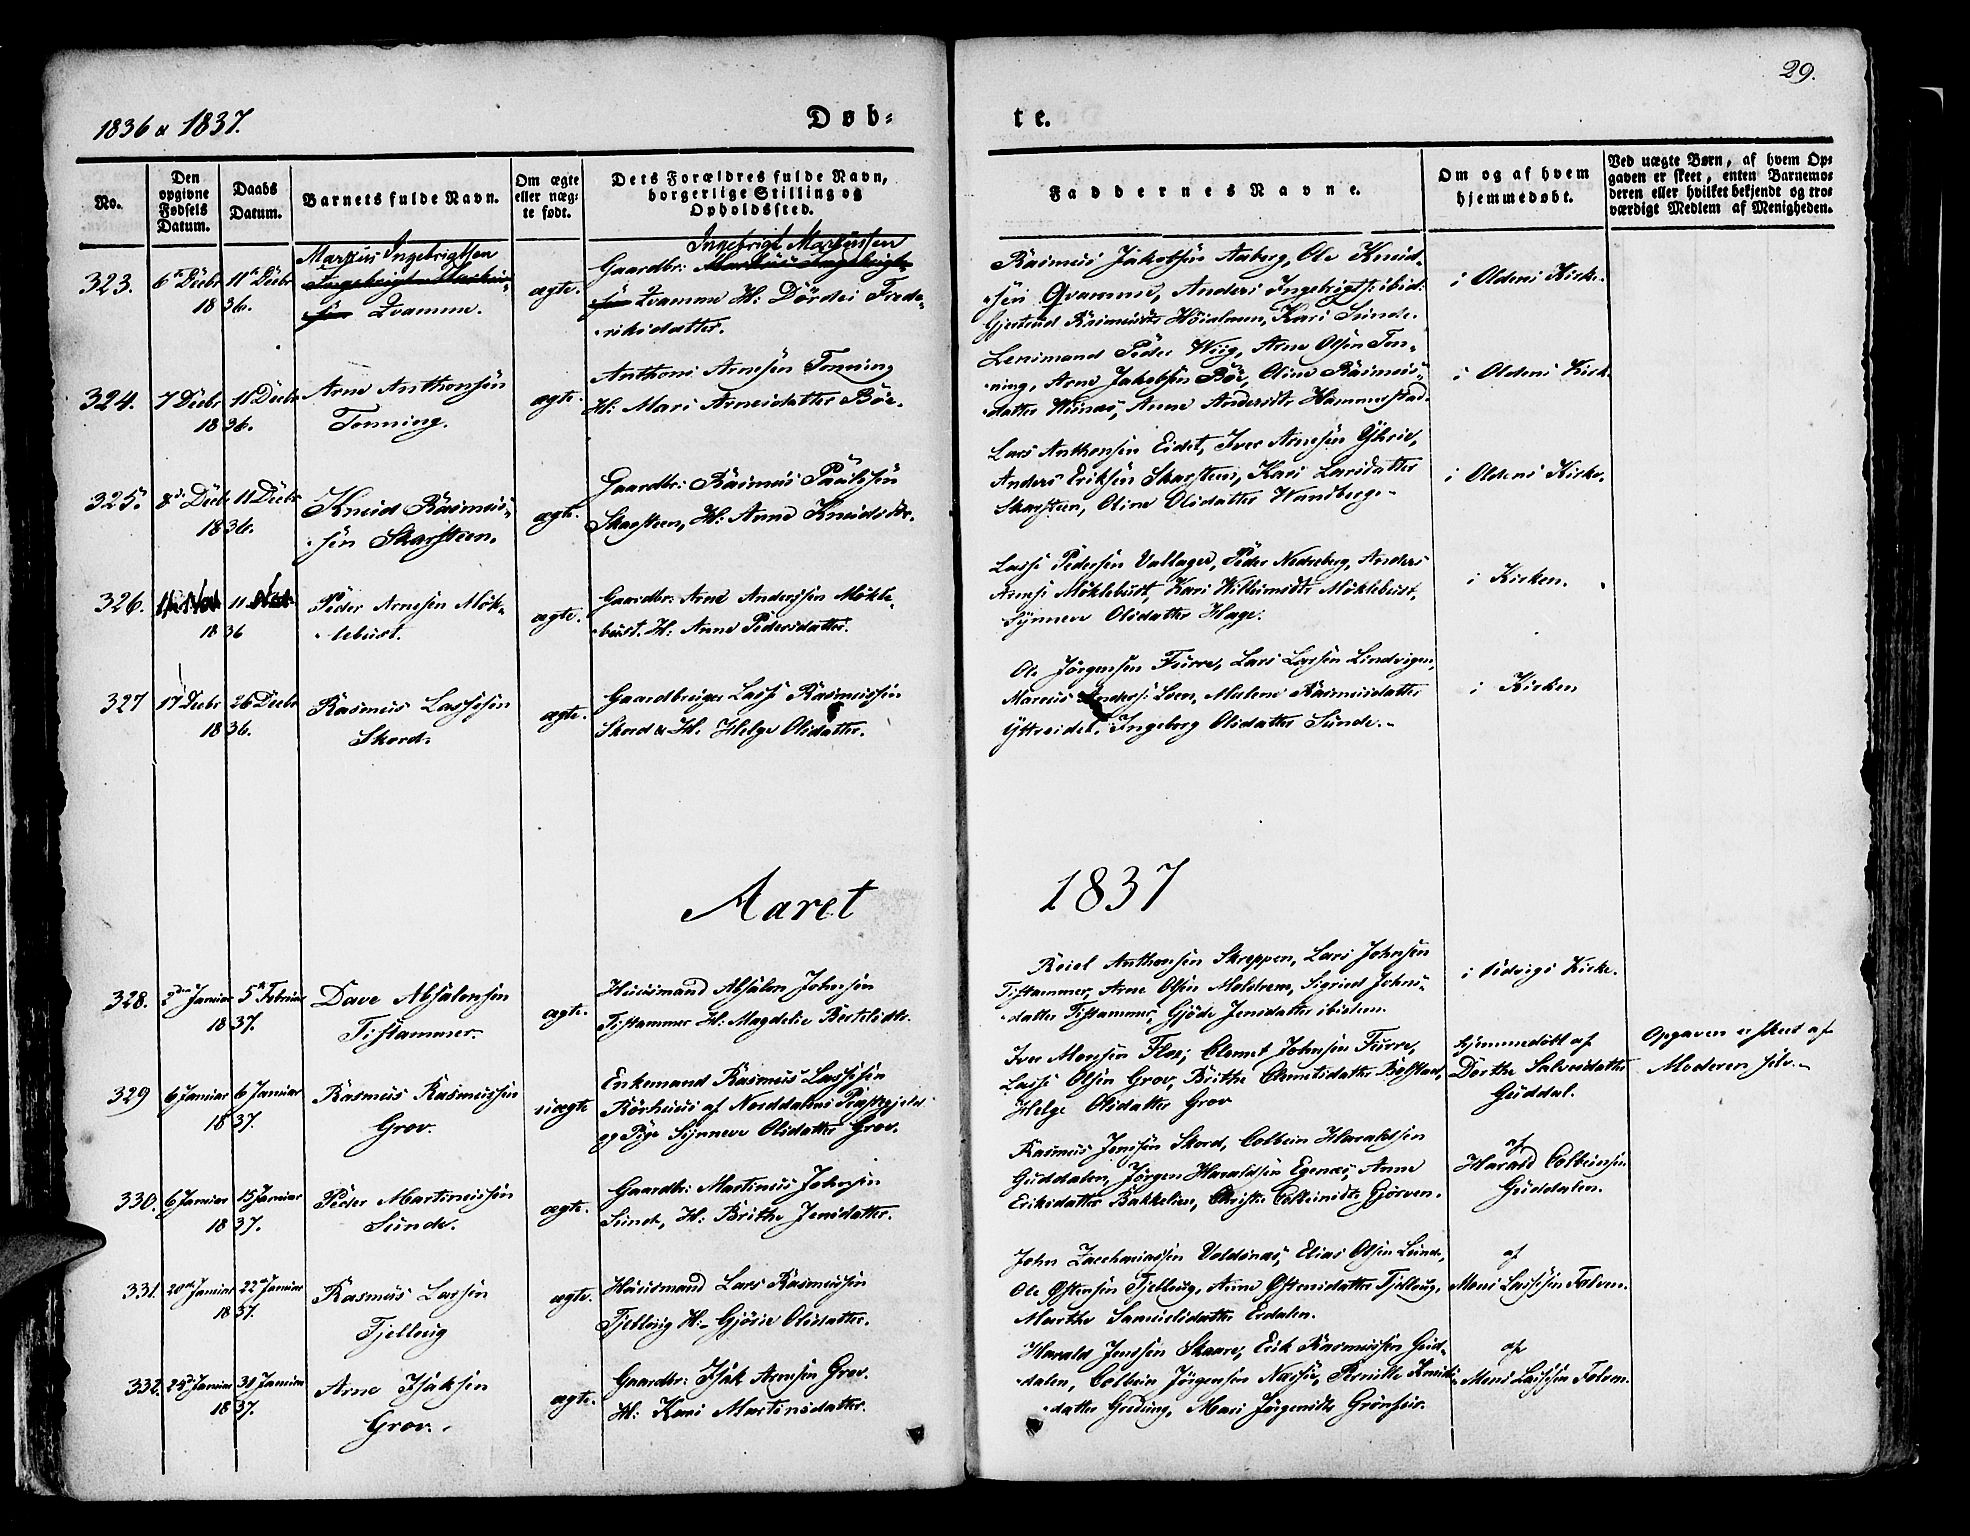 29.
1836 & 1837.
Døb=
te.
No.
Den opgivne Fødsels Datum.
Daabs Datum.
Barnets fulde Navn.
Om ægte eller næg= te født.
Dets Forældres fulde Navn, borgerlige Stilling og Opholdssted.
Faddernes Navne.
Om og af hvem hjemmedøbt.
Ved uægte Børn, af hvem Op= gaven er skeet, enten Barnemo= deren eller hvilket bekjendt og tro= værdigt Medlem af Menigheden.
323.
6te Decbr 1836.
11te Decbr
Markus Ingebrigtsen
Ingebrigt Markus=
sen Qvamme.
ægte.
Ingebrigt Markussen
Gaardbr: Markus Ingebrigt=
sen Qvamme H: Dördei Frede=
rikidatter.
Rasmus Jakobsen Aaberg, Ole Knud=
sen Qvamme, Anders Ingebrigts: ibid:
Gjertrud Rasmusdtr Höialmen, Kari Sunde.
i Oldens Kirke.
324.
7 Decbr 1836.
11 Decbr
Arne Anthonsen
Tonning.
ægte.
Anthoni Arnesen Tonning
H: Mari Arnesdatter Böe.
Lensmand Peder Wiig, Arne Olsen Ton=
ning, Arne Jakobsen Böe, Oline Rasmus=
datter Muus, Anne Andersdtr Hammerstad.
i Oldens Kirk.
325.
8de Decbr 1836.
11 Decbr
Knud Rasmus=
sen Skarsteen.
ægte.
Gaardbr: Rasmus Paulsen
Skarsteen, H: Anne Knudsdtr.
Lars Anthonsen Eidet, Iver Arnesen Yhrie,
Anders Eriksen Skarsteen, Kari Larsdatter
Skarsteen, Oline Olsdatter Wandberge.
i Oldens Kirke.
326.
11 Nov 1836
11 Nov
Peder Arnesen Mök=
lebust.
ægte.
Gaardbr: Arne Anderssen Mökle=
bust. H: Anne Pedersdatter.
Lasse Pedersen Vallager, Peder Nedreberg, Anders
Arnes: Möklebust, Kari Willumsdtr Möklebust,
Synneve Olsdatter Hage.
i Kirken.
327
17 Decbr 1836.
26 Decbr
Rasmus Lassesen
Skord.
ægte.
Gaardbruger Lasse Rasmussen
Skord & H: Helge Olsdatter.
Ole Jörgensen Furre, Lars Larsen Lindvigen,
Marcus Anders: Loen, Malene Rasmusdatter
Yttreidet, Ingeborg Olsdatter Sunde.
i Kirken
Aaret
1837
328.
2den Januar 1837.
5te Februar
Dave Absalonsen
Tistammer.
ægte.
Huusmand Absalon Johnsen
Tistammer H: Magdelie Bertelsdtr.
Reiel Anthonsen Skreppen, Lars Johnsen
Tistammer, Arne Olsen Meldrem, Sigrid Johns=
datter Tistammer, Gjöde Jensdatter ibidem.
i Udvigs Kirke.
329
6 Januar 1837.
6 Januar
Rasmus Rasmussen
Grov.
uægte
Enkemand Rasmus Lassesen
Rörhuus af Norddalens Præstegjeld
og Pige Synneve Olsdatter Grov.
Iver Monsen Floe, Clemet Johnsen Furre,
Lasse Olsen Grov, Brithe Clemetsdatter Bölstad,
Helge Olsdatter Grov
hjemmedöbt af
Dorthe Salvesdatter
Guddal.
Opgaven er skeet af
Moderen selv.
330.
6 Januar 1837.
15 Januar
Peder Martinussen
Sunde.
ægte.
Gaardbr: Martinus Johnsen
Sunde, H: Brithe Jensdatter.
Rasmus Jensen Skord, Colbein Haraldsen
Guddalen, Jörgen Haraldsen Egenæs, Anne
Eriksdatter Bakkelien, Christie Colbeinsdtr Gjörven.
af
Harald Colbeinsen
Guddalen.
331.
20de Januar 1837.
22de Januar
Rasmus Larsen
Fjelloug
ægte.
Huusmand Lars Rasmussen
Fjelloug H: Gjörie Olsdatter.
John Zacchariassen Voldsnæs, Elias Olsen Lunde,
Ole Östensen Fjelloug, Anne Östensdatter Fjelloug,
Marthe Samuelsdatter Erdalen.
af
Mons Lassesen Folven.
332.
25 Januar 1837.
30 Januar
Arne Isaksen
Grov.
ægte.
Gaardbr: Isak Arnesen Grov.
H: Kari Martinsdatter.
Harald Jensen Skaare, Erik Rasmussen Gud=
dalen, Colbein Jörgensen Næsse, Pernille Knuds=
datter Gredung, Mari Jörgensdtr Grönfur.
af
Mons Lassesen Folven.